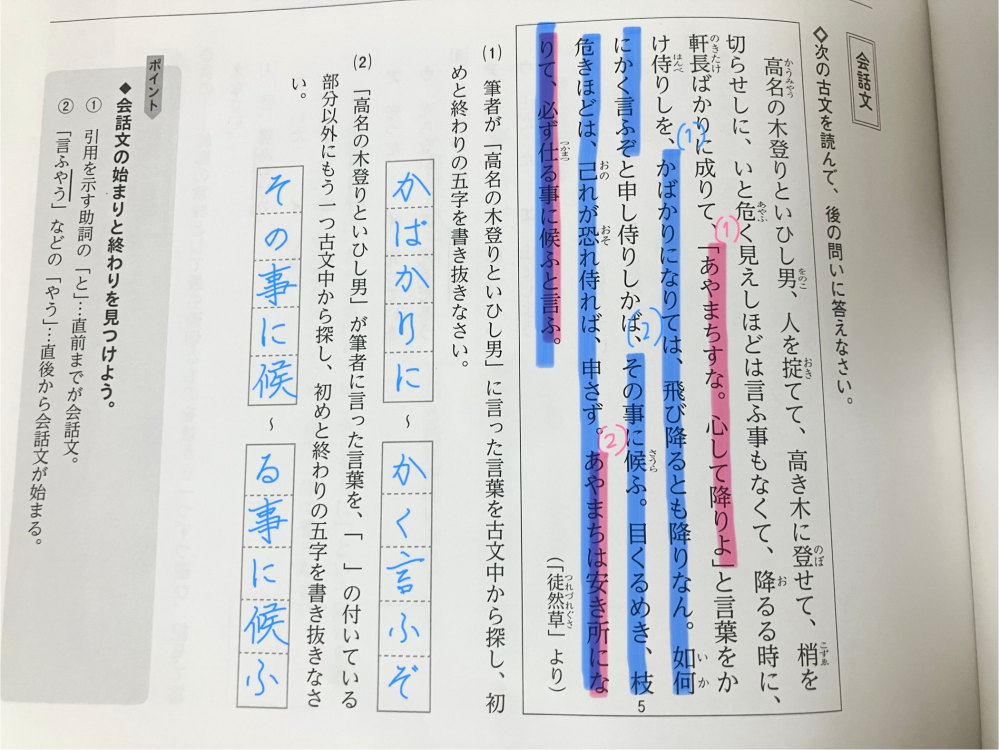 会話文
◇次の古文を読んで、後の問いに答えなさい。
高名の木登りといひし男、人を掟てて、高き木に登せて、梢を
切らせしに、いと危く見えしほどは言ふ事もなくて、降るる時に、
軒長ばかりに成りて、「あやまちすな。心して降りよ」と言葉をか
け侍りしを、かばかりになりては、飛び降るとも降りなん。如何
にかく言ふぞと申し侍りしかば、その事に候ふ。目くるめき、枝
危きほどは、己れが恐れ侍れば、申さず。あやまちは安き所にな
りて、必ず仕る事に候ふと言ふ。
(「徒然草」より)
かうみやう
をのこ
おき
のぼ
こずゑ
あやふ
お
のきたけ
はんべ
いか
さうら
おの
おそ
つかまつ
つれづれぐさ
5
(1)
(1)
(2)
(2)
(1) 筆者が「高名の木登りといひし男」に言った言葉を古文中から探し、初
めと終わりの五字を書き抜きなさい。
かばかりに
〜
かく言ふぞ
(2) 「高名の木登りといひし男」が筆者に言った言葉を、「 」の付いている
部分以外にもう一つ古文中から探し、初めと終わりの五字を書き抜きなさ
い。
その事に候
〜
る事に候ふ
ポイント
◆会話文の始まりと終わりを見つけよう。
① 引用を示す助詞の「と」…直前までが会話文。
② 「言ふやう」などの「やう」…直後から会話文が始まる。